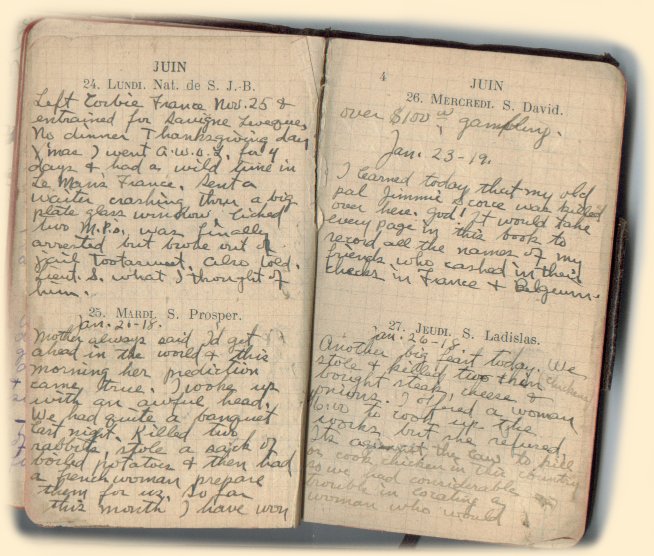 JUIN
24. LUNDI. Nat. de S. J.-B.
Left Corbie France Nov. 25 &
entrained for Savigne Leveques
No dinner Thanksgiving day
X'mas I went A.W.O.L. for 4
days & had a wild time in
Le Mans France. Sent a
waiter crashing thru a big
plate glass window, licked
two M.P.s, was finally
arrested but broke out of
jail Tootsweet. Also told
Lieut. S. what I thought of
him.
25. MARDI. S. Prosper.
Jan. 21-18.
Mother always said I'd get
ahead in the world & this
morning her prediction
came true. I woke up
with an awful head.
We had quite a banquet
last night. Killed two
rabbits, stole a sack of
boiled potatoes & then had
a frenchwoman prepare
them for us. So far
this month I have won
4
JUIN
26. MERCREDI. S. David.
over $100 gambling.
Jan. 23-19.
I learned today that my old
pal Jimmie Scorce was killed
over here. God! It would take
every page in this book to
record all the names of my
friends who cashed in their
checks in France & Belgeium.
27. JEUDI. S. Ladislas.
Jan. 26-18.
Another big feast today. We
stole & killed two hen chickens
bought steak, cheese &
onions. I offered a woman
to cook up the
works but she refused
Its against the law to kill
or cook chicken in this country
so we had considerable
trouble in locating a
woman who would